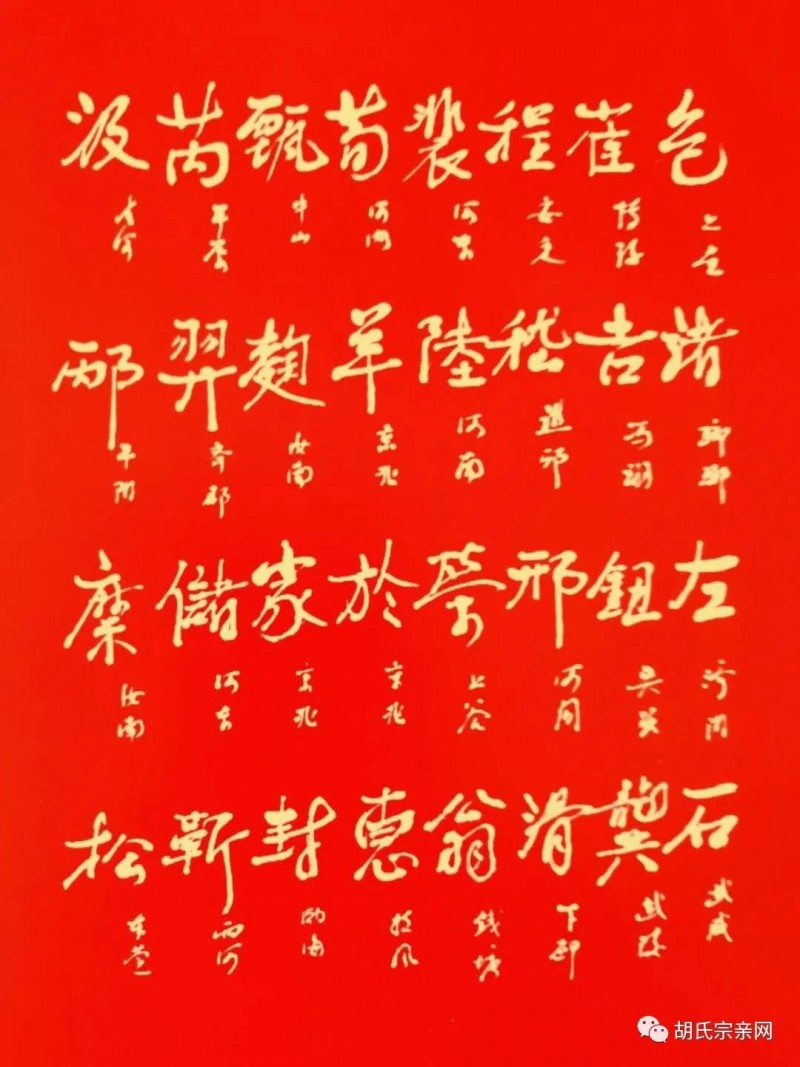 包 上党 諸 琅琊 左 济阳 石 武威
崔 博陵 吉 冯翊 鈕 吴兴 龔 武陵
程 安定 嵇 邢 河间 滑 下邳
裴 河东 陸 河南 荣 上谷 翁 钱塘
荀 河内 羊 京兆 於 京兆 惠 扶风
甄 中山 麹 汝南 家 京兆 封 渤海
芮 平原 羿 齐郡 儲 河东 靳 西河
汲 清河 邴 平阳 糜 汝南 松 东莞
胡氏宗亲网